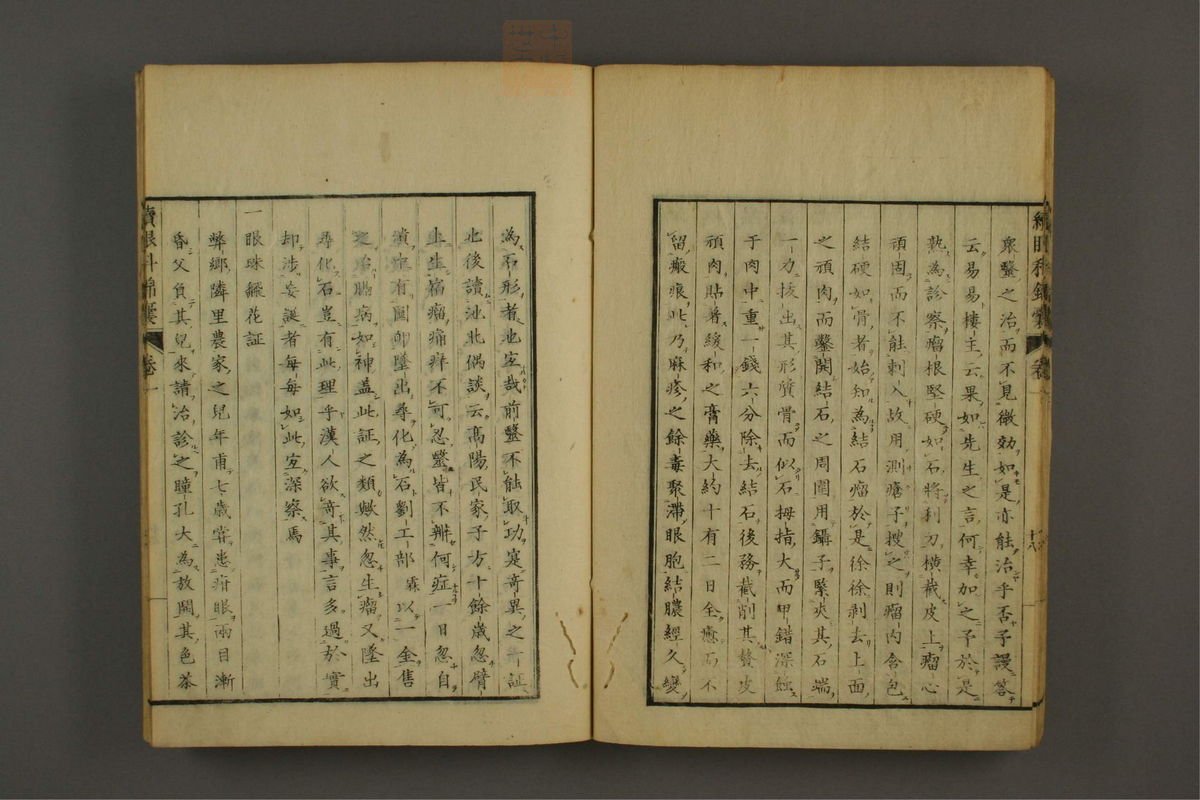 衆毉之治而不見徴効如是亦能治乎否予謾答
云易易樓主云果如先生之言何幸加之予於是
熟為診察瘤根堅硬如石將利刀横截皮上瘤心
頑固而不能刺入故用測瘡子搜之則瘤内含包
結硬如骨者始知為結石瘤於是徐徐剥去上面
之頑肉而鑿開結石之周圍用鑷子緊夾其石端
一力抜出其形質骨而似石拇指大而甲錯深蝕
于肉中重一錢六分除去結石後務截削其贅皮
頑肉貼著緩和之膏藥大約十有二日全癒而不
留瘢痕此乃麻疹之餘毒聚滯眼胞結膿經久變
為石形者也宜哉前毉不能取功寔奇異之証
也後讀池北偶談云高陽民家子方十餘歲忽臂
上生宿瘤痛痒不可忍毉皆不辨何症一日忽自
潰中有圓卵墜出尋化為石劉工部霖以一金售
之治膈病如神盖此証之類歟然忽生瘤又墜出
尋化石豈有此理乎漢人欲奇其事言多過於實
却渉妄誕者毎毎如此宜深察焉
一眼珠纎花証
弊郷隣里農家之兒年甫七歳嘗患疳眼兩目漸
昏父負其兒來請治診之瞳孔大為放開其色茶
續眼科錦囊 卷一